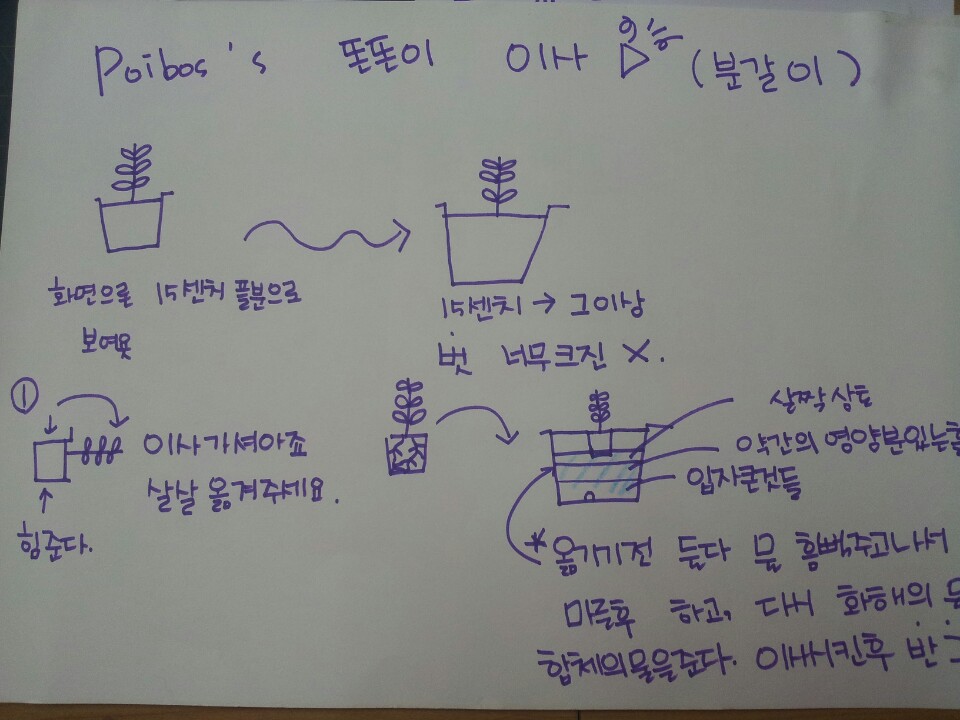 Poibos's 똔똔이 이사 (분갈이)
화면으로 15센치 플분으로
보여욧
15센치 → 그이상
벗 너무크진 X.
①
이사가셔야죠
살살 옮겨주세요.
힘준다.
살짝 상토
약간의 영양분있는흙
입자큰것들
* 옮기기전 둘다 물 흠뻑주고나서
마른후 하고, 다시 화해의
합체의물을준다. 이사시킨후 반